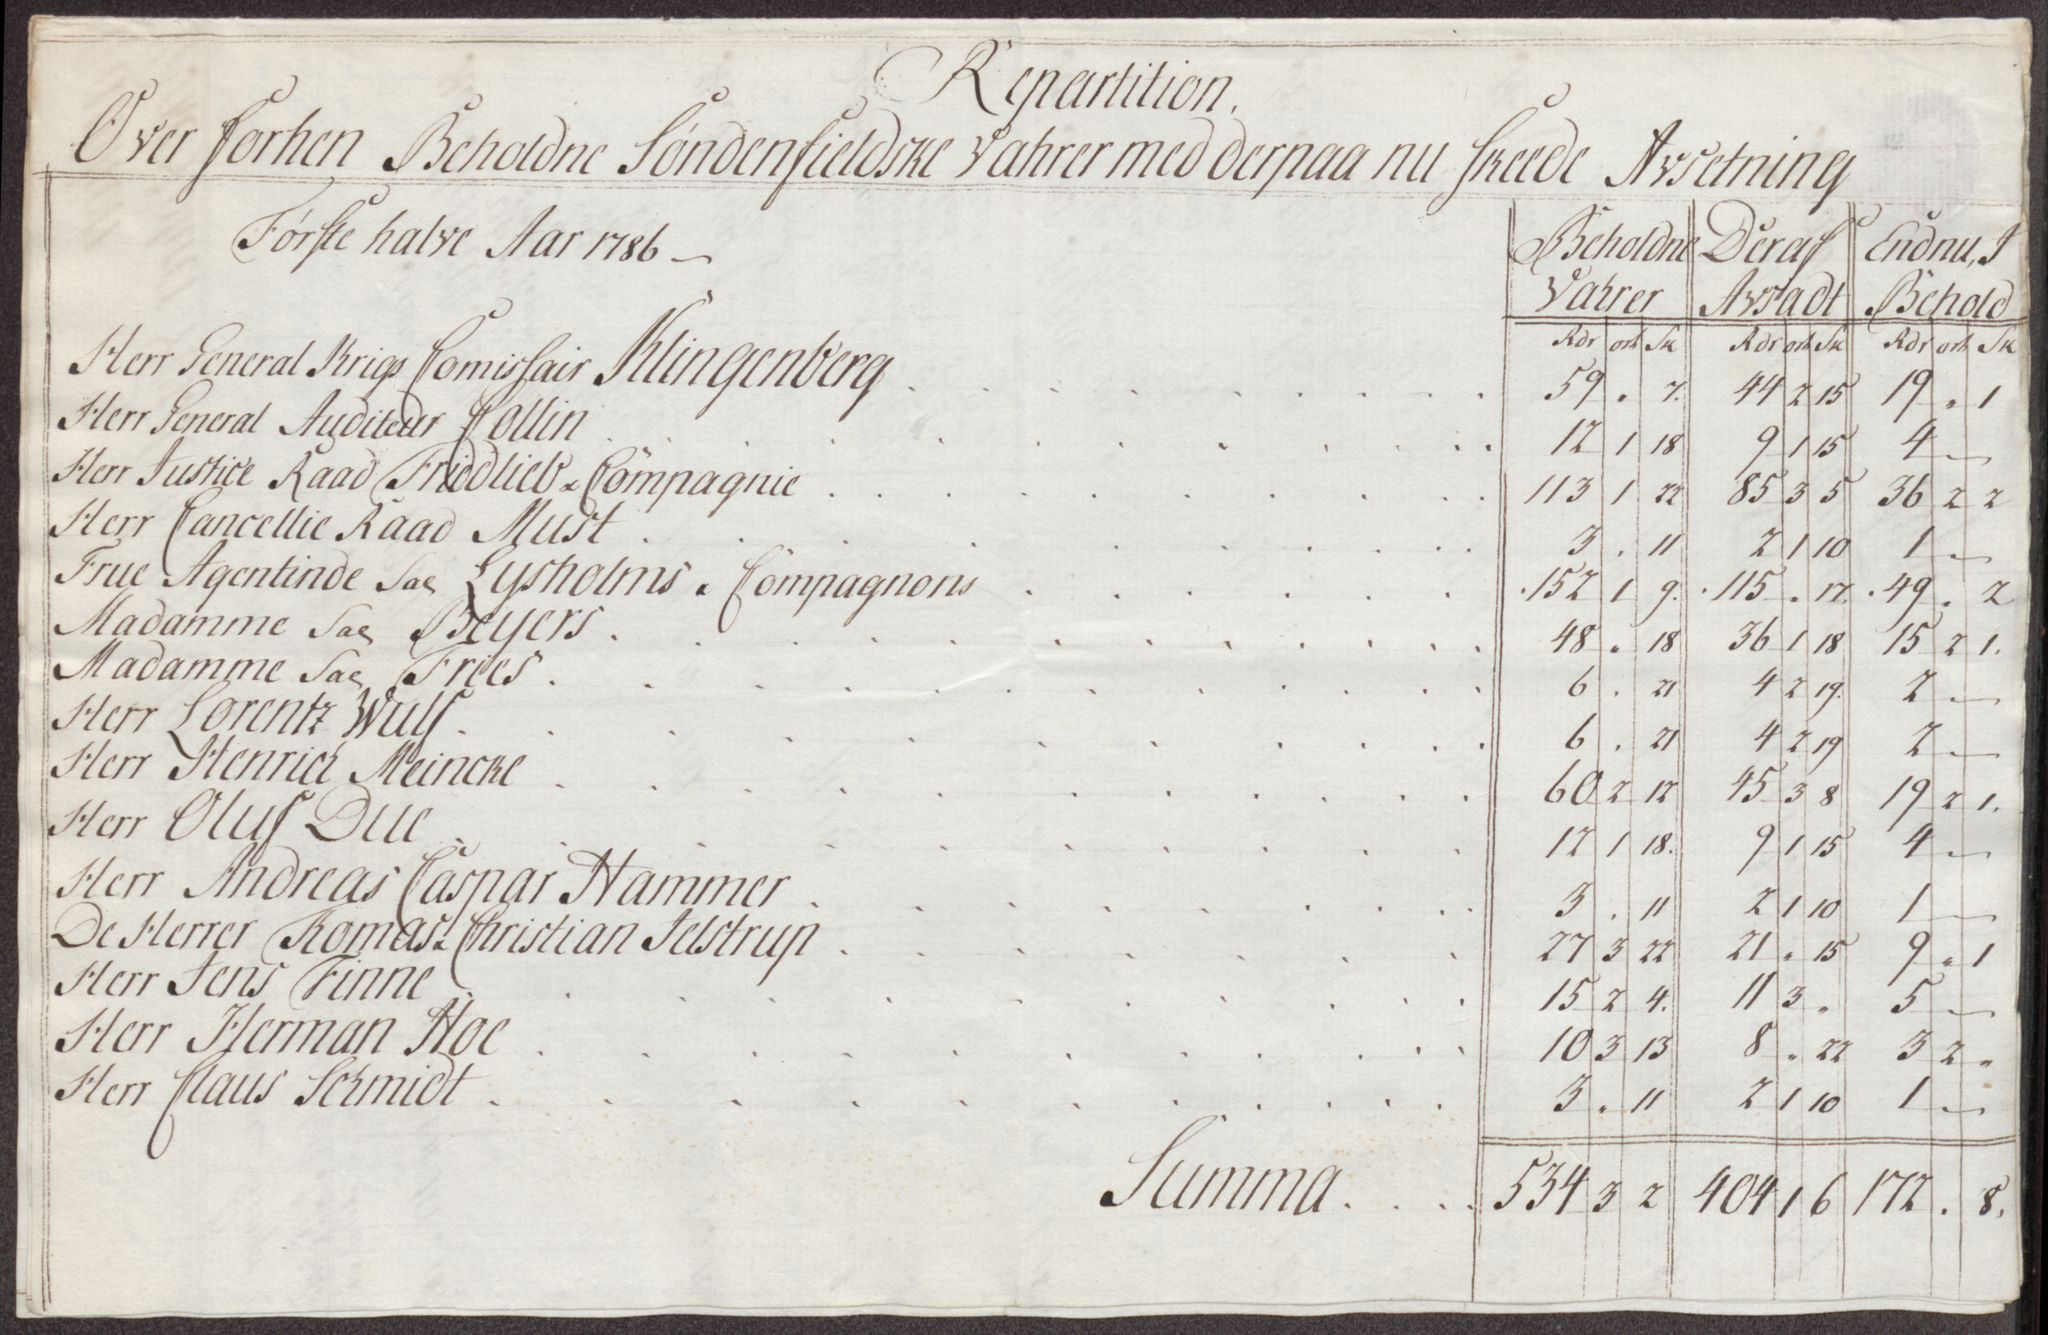 Repartition.
Over forhen Beholdne Søndenfieldske Vahrer med derpaa nu skeede Avsetning
Første halve Aar 1786
Beholdne Vahrer | Deraf Avsadt | Endnu, I Behold
Rdr ort Sk | Rdr ort Sk | Rdr ort Sk
Herr General Krigs Comissair Klingenberg . . . 59 . 7. | 44 2 15 | 19 . 1
Herr General Auditeur Collin . . . 12 1 18 | 9 1 15 | 4 —
Herr Justice Raad Friedlieb & Compagnie . . . 113 1 22 | 85 3 5 | 36 2 2
Herr Cancellie Raad Must . . . 3 . 11 | 2 1 10 | 1 —
Frue Agentinde Sal Lysholms & Compagnons . . . 152 1 9. | 115 . 17. | 49 . 2
Madamme Sal Beyers . . . 48 . 18 | 36 1 18 | 15 2 1.
Madamme Sal Fries . . . 6 . 21 | 4 2 19. | 2 —
Herr Lorentz Wulf . . . 6 . 21 | 4 2 19 | 2 —
Herr Henrich Meincke . . . 60 2 12 | 45 3 8 | 19 2 1.
Herr Oluf Due . . . 12 1 18. | 9 1 15 | 4 —
Herr Andreas Caspar Hammer . . . 3 . 11 | 2 1 10 | 1 —
De Herrer Thomas & Christian Jelstrup . . . 27 3 22 | 21 . 15 | 9 . 1
Herr Jens Finne . . . 15 2 4. | 11 3 . | 5 —
Herr Herman Hoe . . . 10 3 13 | 8 . 22 | 3 2 .
Herr Claus Schmidt . . . 3 . 11 | 2 1 10 | 1 —
Summa . . . . 534 3 2 | 404 1 6 | 172 . 8.